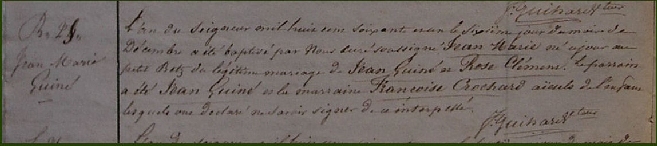 J. Guiharet
B. 48.
Jean Marie
Guiné
L'an du Seigneur mil huit cent soixante et un le sixième jour du mois de
Décembre a été baptisé par Nous curé soussigné Jean Marie né ce jour au
petit Betz du légitime mariage de Jean Guiné et Rose Clément. Le parrain
a été Jean Guiné et la marraine Françoise Crochard aïeuls de l'enfant
lesquels ont déclaré ne savoir signer de ce interpellés.
J. Guiharet